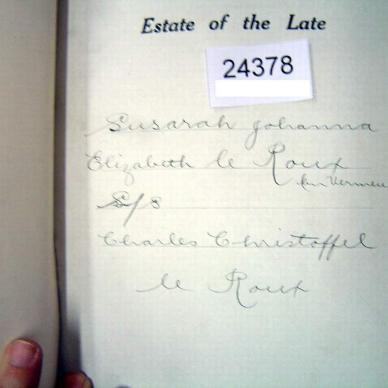 Estate of the Late
24378
Susarah Johanna
Elizabeth le Roux
S/s
Charles Christoffel
le Roux